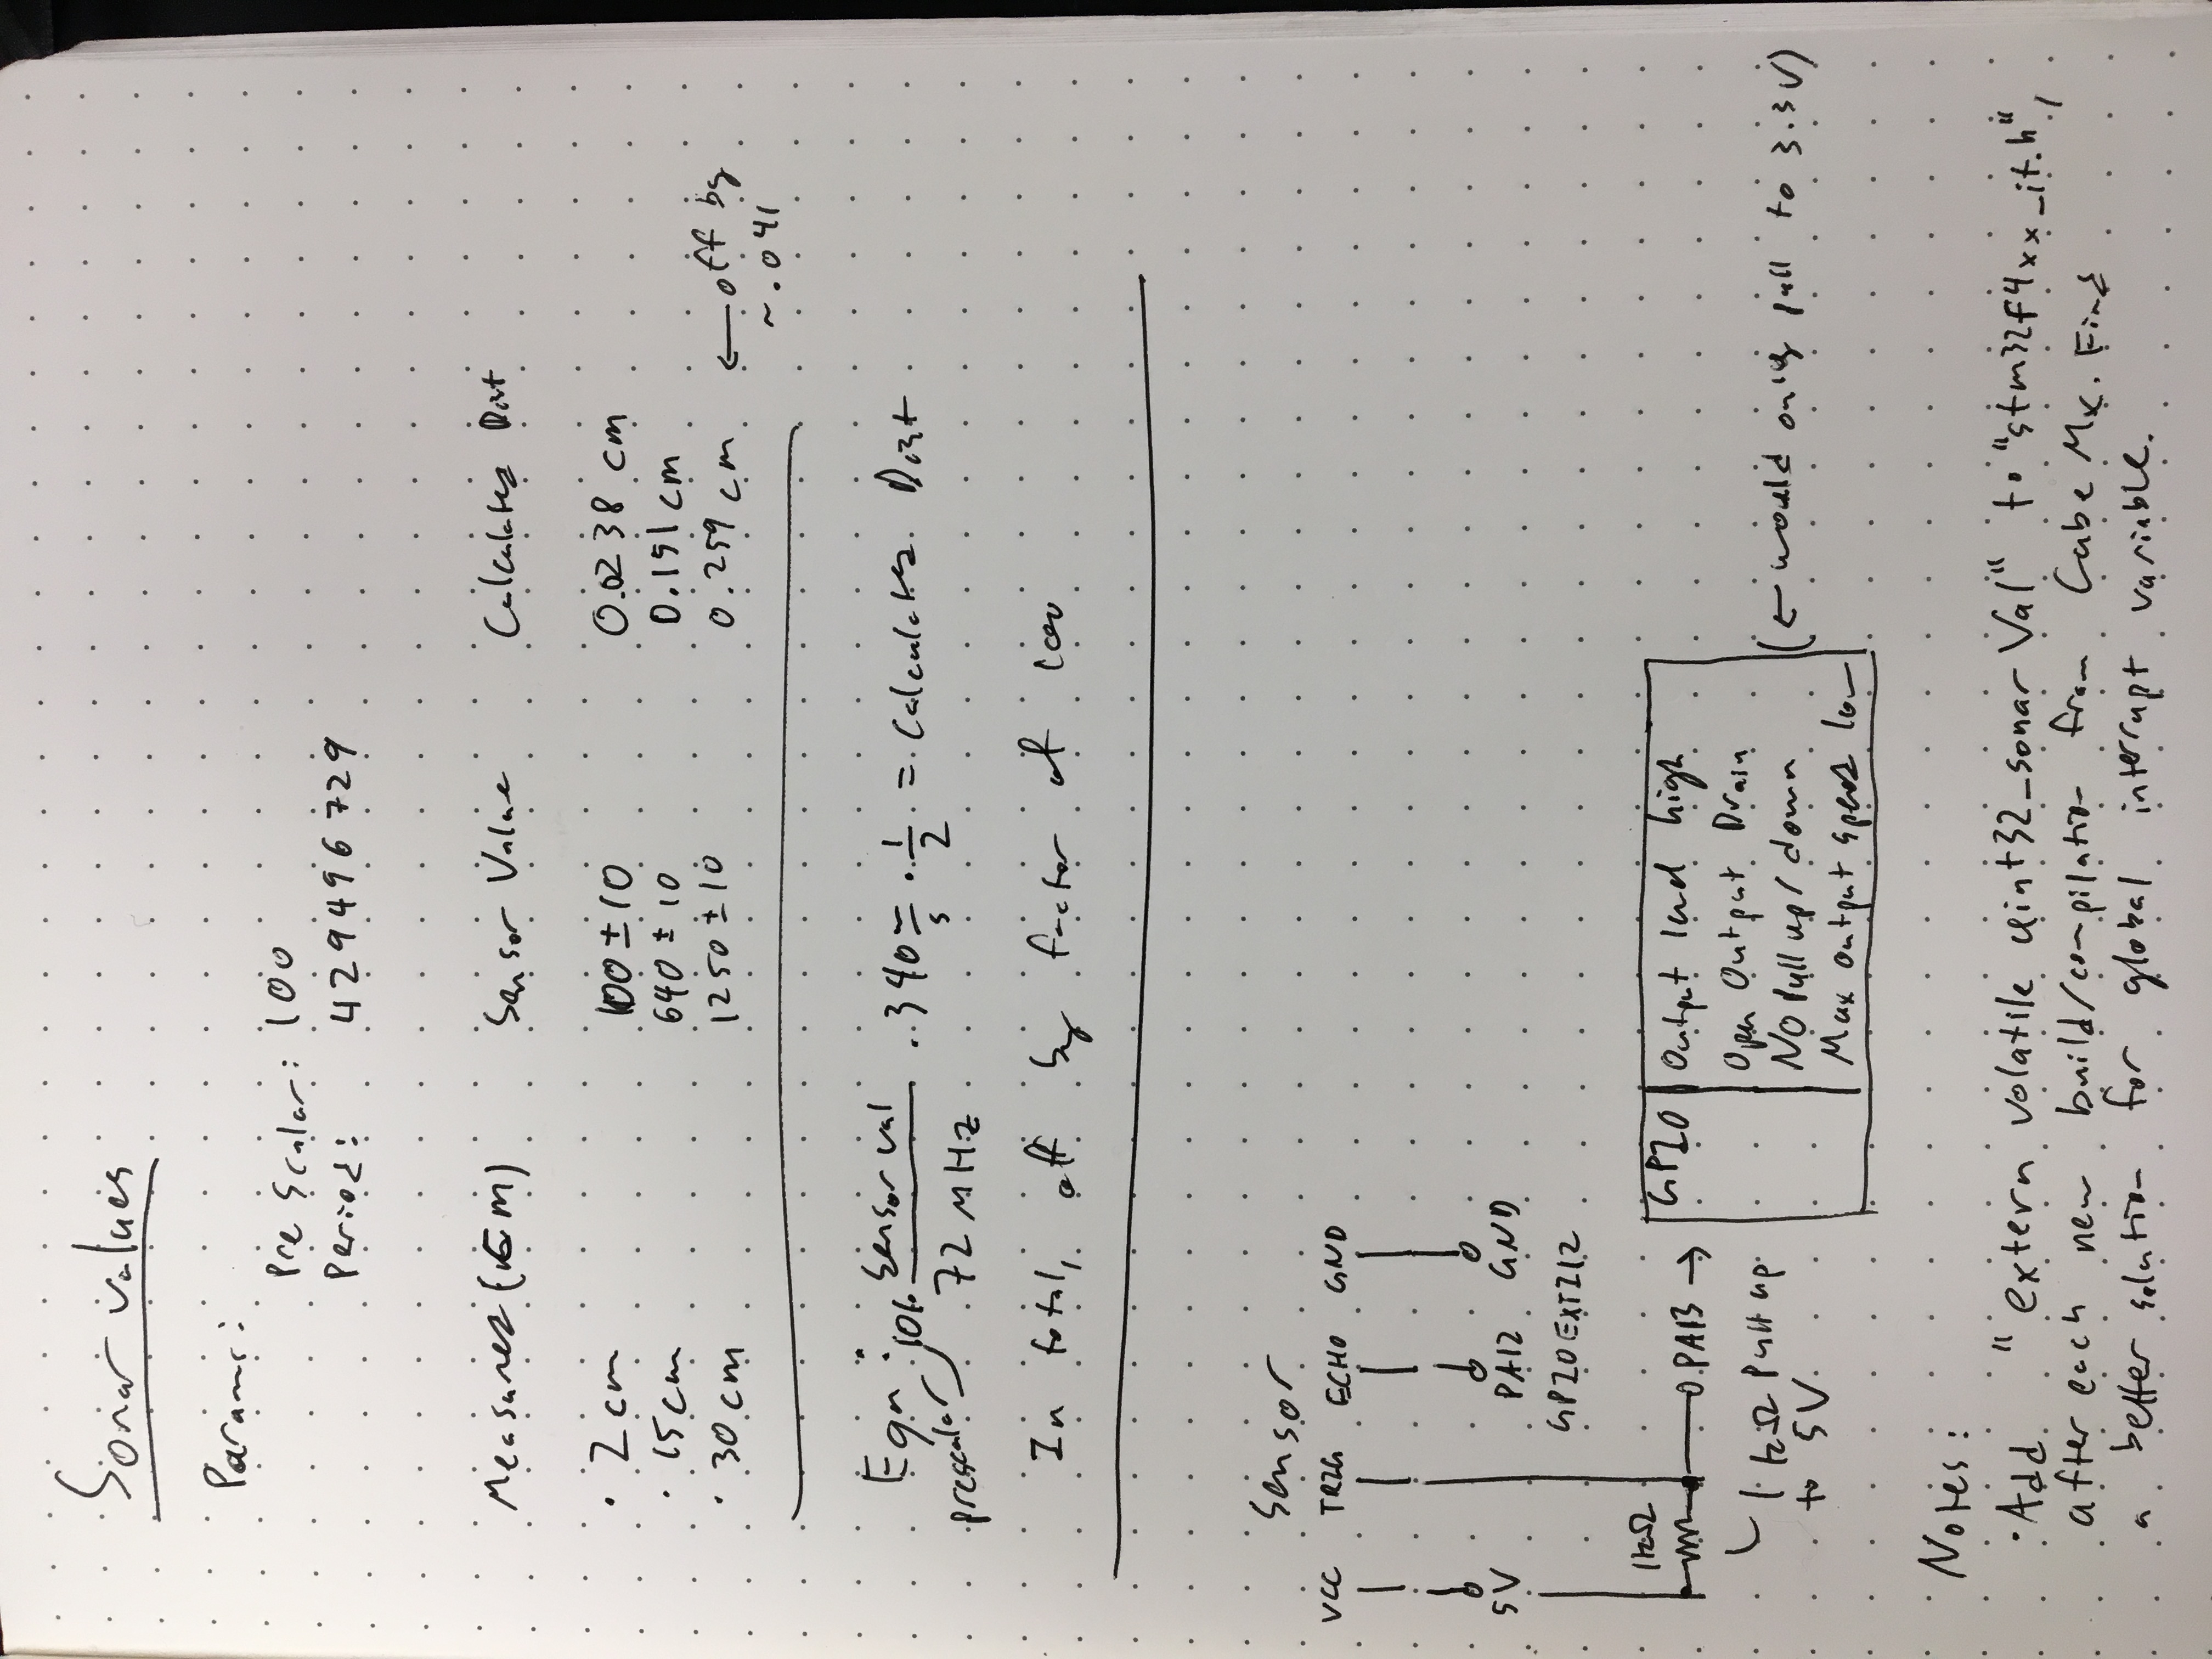 Sonar values
Params:
Pre Scalar: 100
Period: 429496729
Measured (cm) Sensor Value Calculated Dist
· 2 cm 100 ± 10 0.0238 cm
· 15 cm 640 ± 10 0.151 cm
· 30 cm 1250 ± 10 0.259 cm ← off by
~.041
Eqn: 101· Sensor val / 72 MHz · 340 m/s · 1/2 = Calculated Dist
prescalar
In total, off by factor of 100
Sensor
VCC TRIG ECHO GND
5V PA12 GND
GPIO EXTI12
1kΩ
PA13 →
GPIO Output level high
Open Output Drain
No Pull up/down (← would only pull to 3.3V)
Max output speed low
1 kΩ Pull up
to 5V
Notes:
· Add "extern volatile uint32_sonar Val" to "stm32f4xx_it.h",
after each new build/compilation from Cube Mx. Find
a better solution for global interrupt variable.